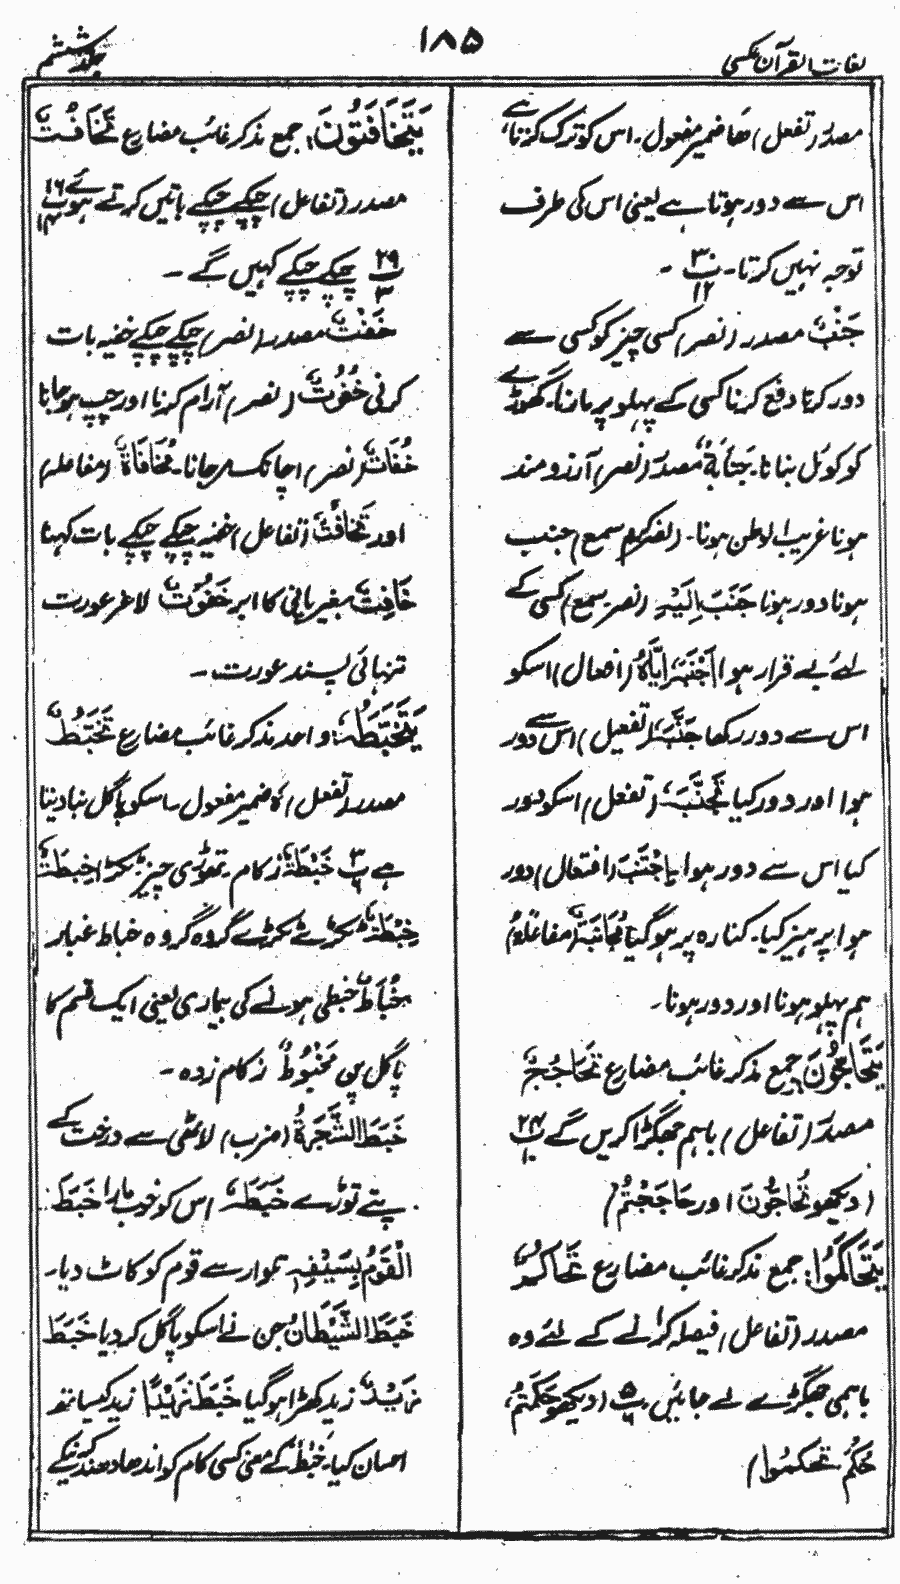 لغات القرآن عکسی
۱۸۵
جلد ششم
مصدر (تفعل) ھا ضمیر مفعول۔ اس کو ترک کرتا ہے
اس سے دور ہوتا ہے یعنی اس کی طرف
توجہ نہیں کرتا۔ پ۳۰ ۱۲ ۔
جَنْبٌ مصدر (نصر) کسی چیز کو کسی سے
دور کرنا دفع کرنا کسی کے پہلو پر مارنا۔ گھوڑے
کو کوتل بنانا۔ جَنَابَۃٌ مصدر (نصر) آرزومند
ہونا غریب الوطن ہونا۔ (نصر کرم سمع) جنب
ہونا دور ہونا جَنَبَ اِلَیْہِ (نصر۔ سمع) کسی کے
لئے بے قرار ہوا اَجْنَبَہٗ اِیَّاہُ (افعال) اسکو
اس سے دور رکھا جَنَّبَہٗ (تفعیل) اس سے دور
ہوا اور دور کیا تَجَنَّبَہٗ (تفعل) اسکو دور
کیا اس سے دور ہوا اِجْتَنَبَ (افتعال) دور
ہوا پرہیز کیا۔ کنارہ پر ہو گیا مُجَانَبَۃٌ (مفاعلہ)
ہم پہلو ہونا اور دور ہونا۔
یَتَحَاجُّوْنَ جمع مذکر غائب مضارع تَحَاجُجٌ
مصدر (تفاعل) باہم جھگڑا کریں گے پ۲۴
(دیکھو تُحَاجُّوْنَ اور حَاجَجْتُمْ)
یَتَحَاکَمُوْا: جمع مذکر غائب مضارع تَحَاکُمٌ
مصدر (تفاعل) فیصلہ کرانے کے لئے وہ
باہمی جھگڑے لے جائیں پ۵ (دیکھو حَکَمْتُمْ،
حُکْمٌ۔ تَحْکُمُوْا)
یَتَخَافَتُوْنَ: جمع مذکر غائب مضارع تَخَافُتٌ
مصدر (تفاعل) چپکے چپکے باتیں کرتے ہوئے پ۱۶
پ۲۹ ۳ چپکے چپکے کہیں گے۔
خَفْتٌ مصدر (نصر) چپکے چپکے خفیہ بات
کرنی خُفُوْتٌ (نصر) آرام کرنا اور چپ ہو جانا
خُفَاتٌ (نصر) اچانک مرجانا۔ مُخَافَاۃٌ (مفاعلہ)
اور تَخَافُتٌ (تفاعل) خفیہ چپکے چپکے بات کہنا
خَافِتٌ بغیر پانی کا ابر خَفُوْتٌ لاغر عورت
تنہائی پسند عورت۔
یَتَخَبَّطُہٗ: واحد مذکر غائب مضارع تَخَبُّطٌ
مصدر (تفعل) ہٗ ضمیر مفعول۔ اسکو پاگل بنا دیتا
ہے پ۳ خَبْطَۃٌ زکام۔ تھوڑی چیز ٹکڑا خِبْطَۃٌ
خِبْطَۃٌ ٹکڑے ٹکڑے گروہ گروہ خباط غبار
خُبَاطٌ خبطی ہونے کی بیماری یعنی ایک قسم کا
پاگل پن مَخْبُوْطٌ زکام زدہ۔
خَبَطَ الشَّجَرَۃَ (ضرب) لاٹھی سے درخت کے
پتے توڑے خَبَطَہٗ اس کو خوب مارا خَبَطَ
الْقَوْمَ بِسَیْفِہٖ تلوار سے قوم کو کاٹ دیا۔
خَبَطَ الشَّیْطَانُ جن نے اسکو پاگل کر دیا خَبَطَ
زَیْدٌ زید کھڑا ہو گیا خَبَطَ زَیْدًا زید کے ساتھ
احسان کیا۔ خَبْطٌ کے معنی کسی کام کو اندھا دھند کرنے کے